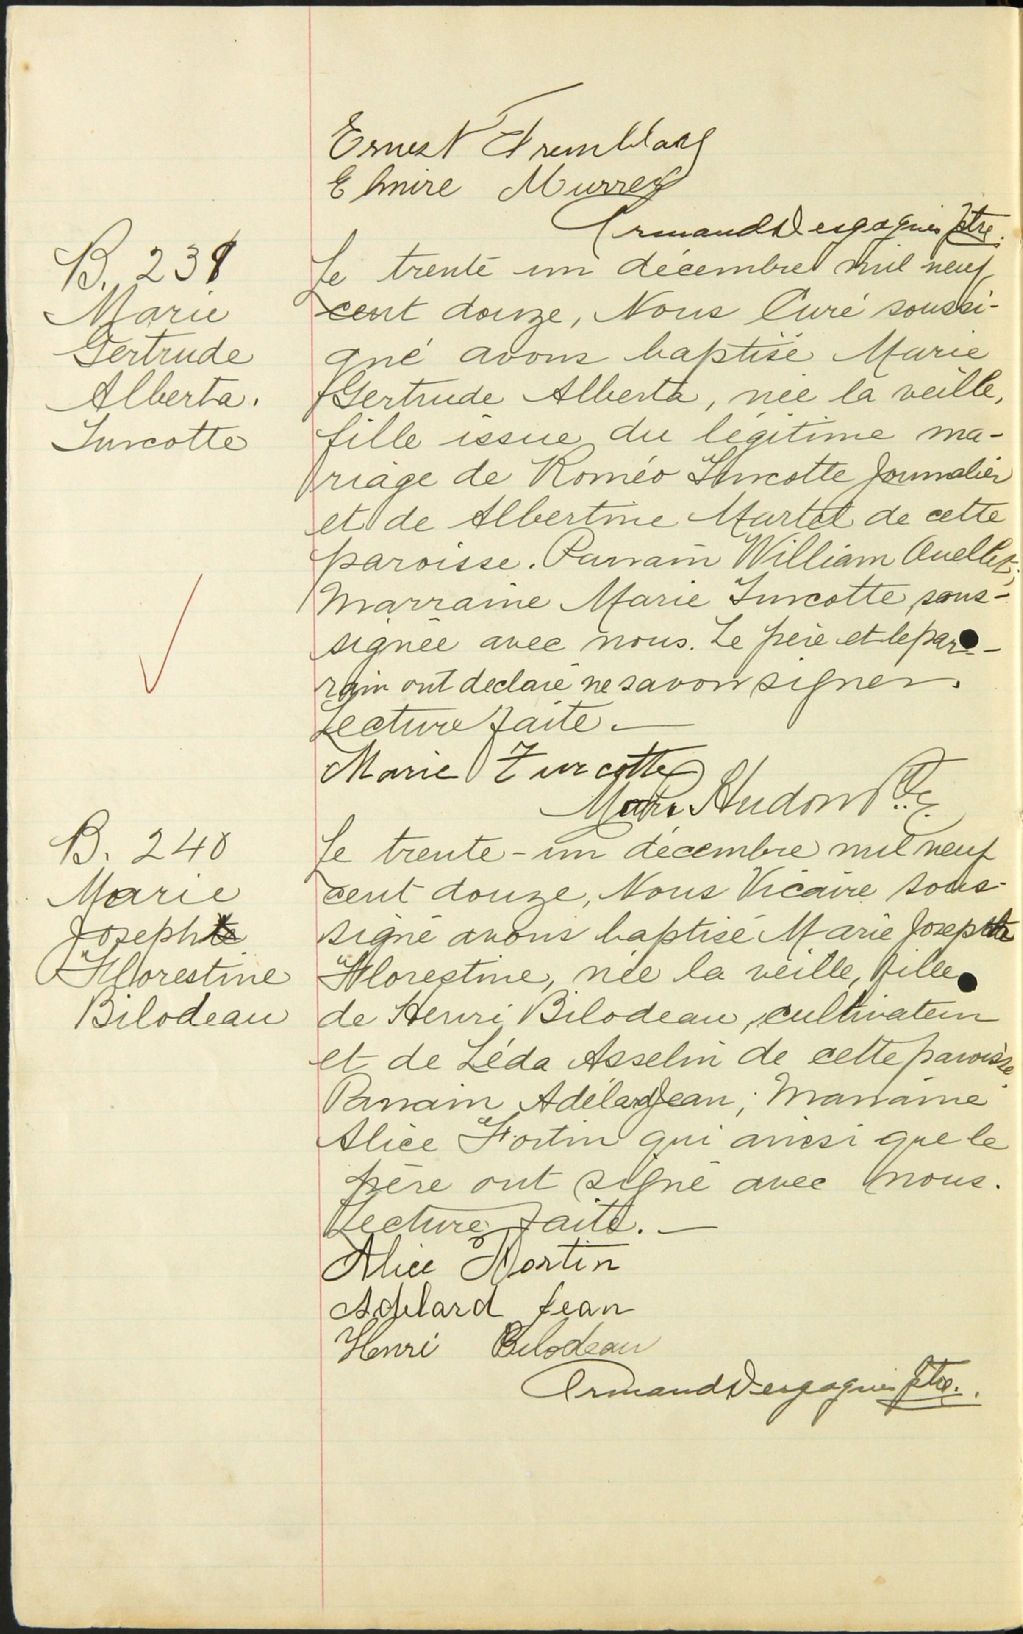 Ernest Tremblay
Elmire Murray
Armand Desgagnés ptre.
B. 239
Marie
Gertrude
Alberta.
Turcotte
Le trente un décembre mil neuf
cent douze, Nous Curé soussi-
gné avons baptisé Marie
Gertrude Alberta, née la veille,
fille issue du légitime ma-
riage de Roméo Turcotte Journalier
et de Albertine Martel de cette
paroisse. Parrain William Ouellet;
Marraine Marie Turcotte sous-
signée avec nous. Le père et le par-
rain ont déclaré ne savoir signer.
Lecture faite.—
Marie Turcotte
Hudon Ptre
B. 240
Marie
Josephte
Florestine
Bilodeau
Le trente-un décembre mil neuf
cent douze, Nous Vicaire sous-
signé avons baptisé Marie Josephte
Florestine, née la veille, fille
de Henri Bilodeau, cultivateur
et de Léda Asselin de cette paroisse
Parrain Adélard Jean; Marraine
Alice Fortin qui ainsi que le
père ont signé avec nous.
Lecture faite.—
Alice Fortin
Adelard Jean
Henri Bilodeau
Armand Desgagnés ptre.